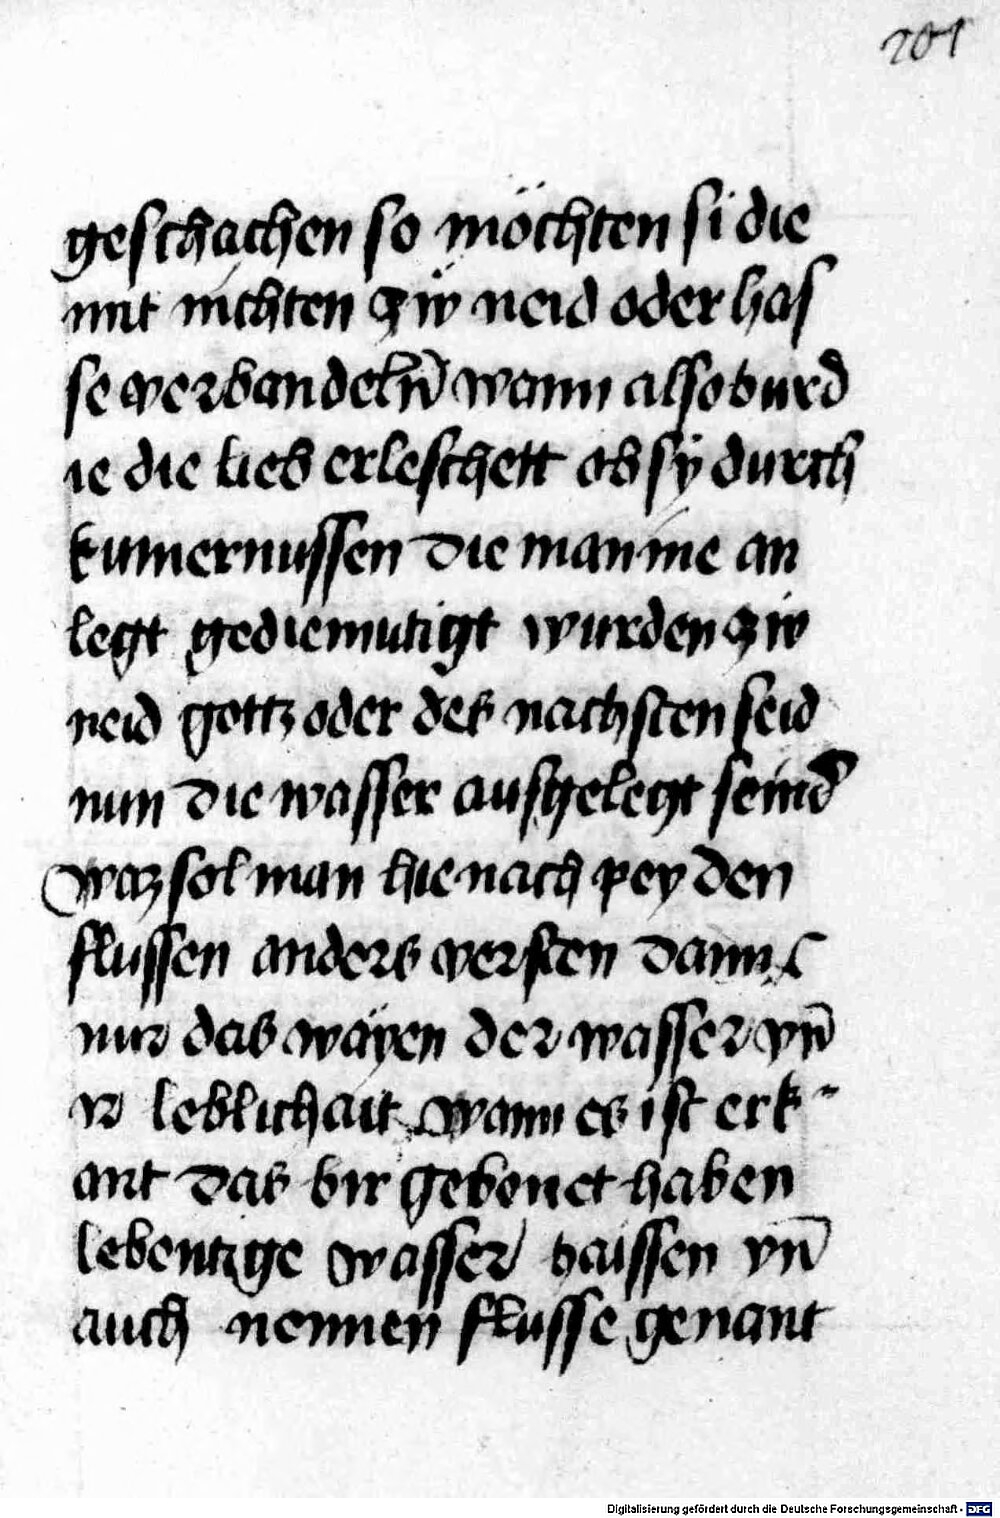 201
geschachen so möchten si die
mit nichten zw neid oder has
se verbandeln wann also burd
ie die lieb erleschett ob sÿ durch
kumernussen die man ine an
legt gediemutigt wurden zw
neid gottz oder des nachsten seid
nun die wasser ausgelegt seind
waz sol man hie nach pey den
flussen anders versten dann
nur das wäyen der wasser vn̄
ir leblichait wann es ist erk-
ant das bir gebonet haben
lebentige wasser haissen vn̄
auch nennen flusse genant
Digitalisierung gefördert durch die Deutsche Forschungsgemeinschaft - DFG